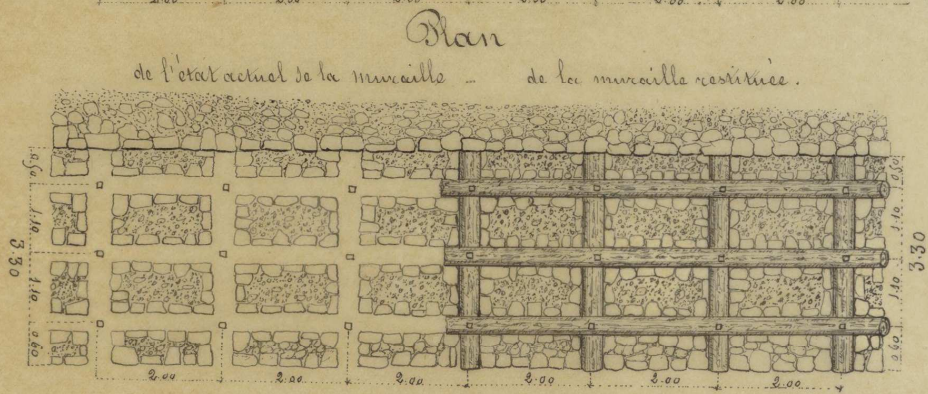 2.00 2.00 2.00 2.00 2.00 2.00
Plan
de l'état actuel de la muraille _ de la muraille restituée.
0.50 0.50
1.10 1.10
3.30 3.30
1.10 1.10
0.60 0.60
2.00 2.00 2.00 2.00 2.00 2.00